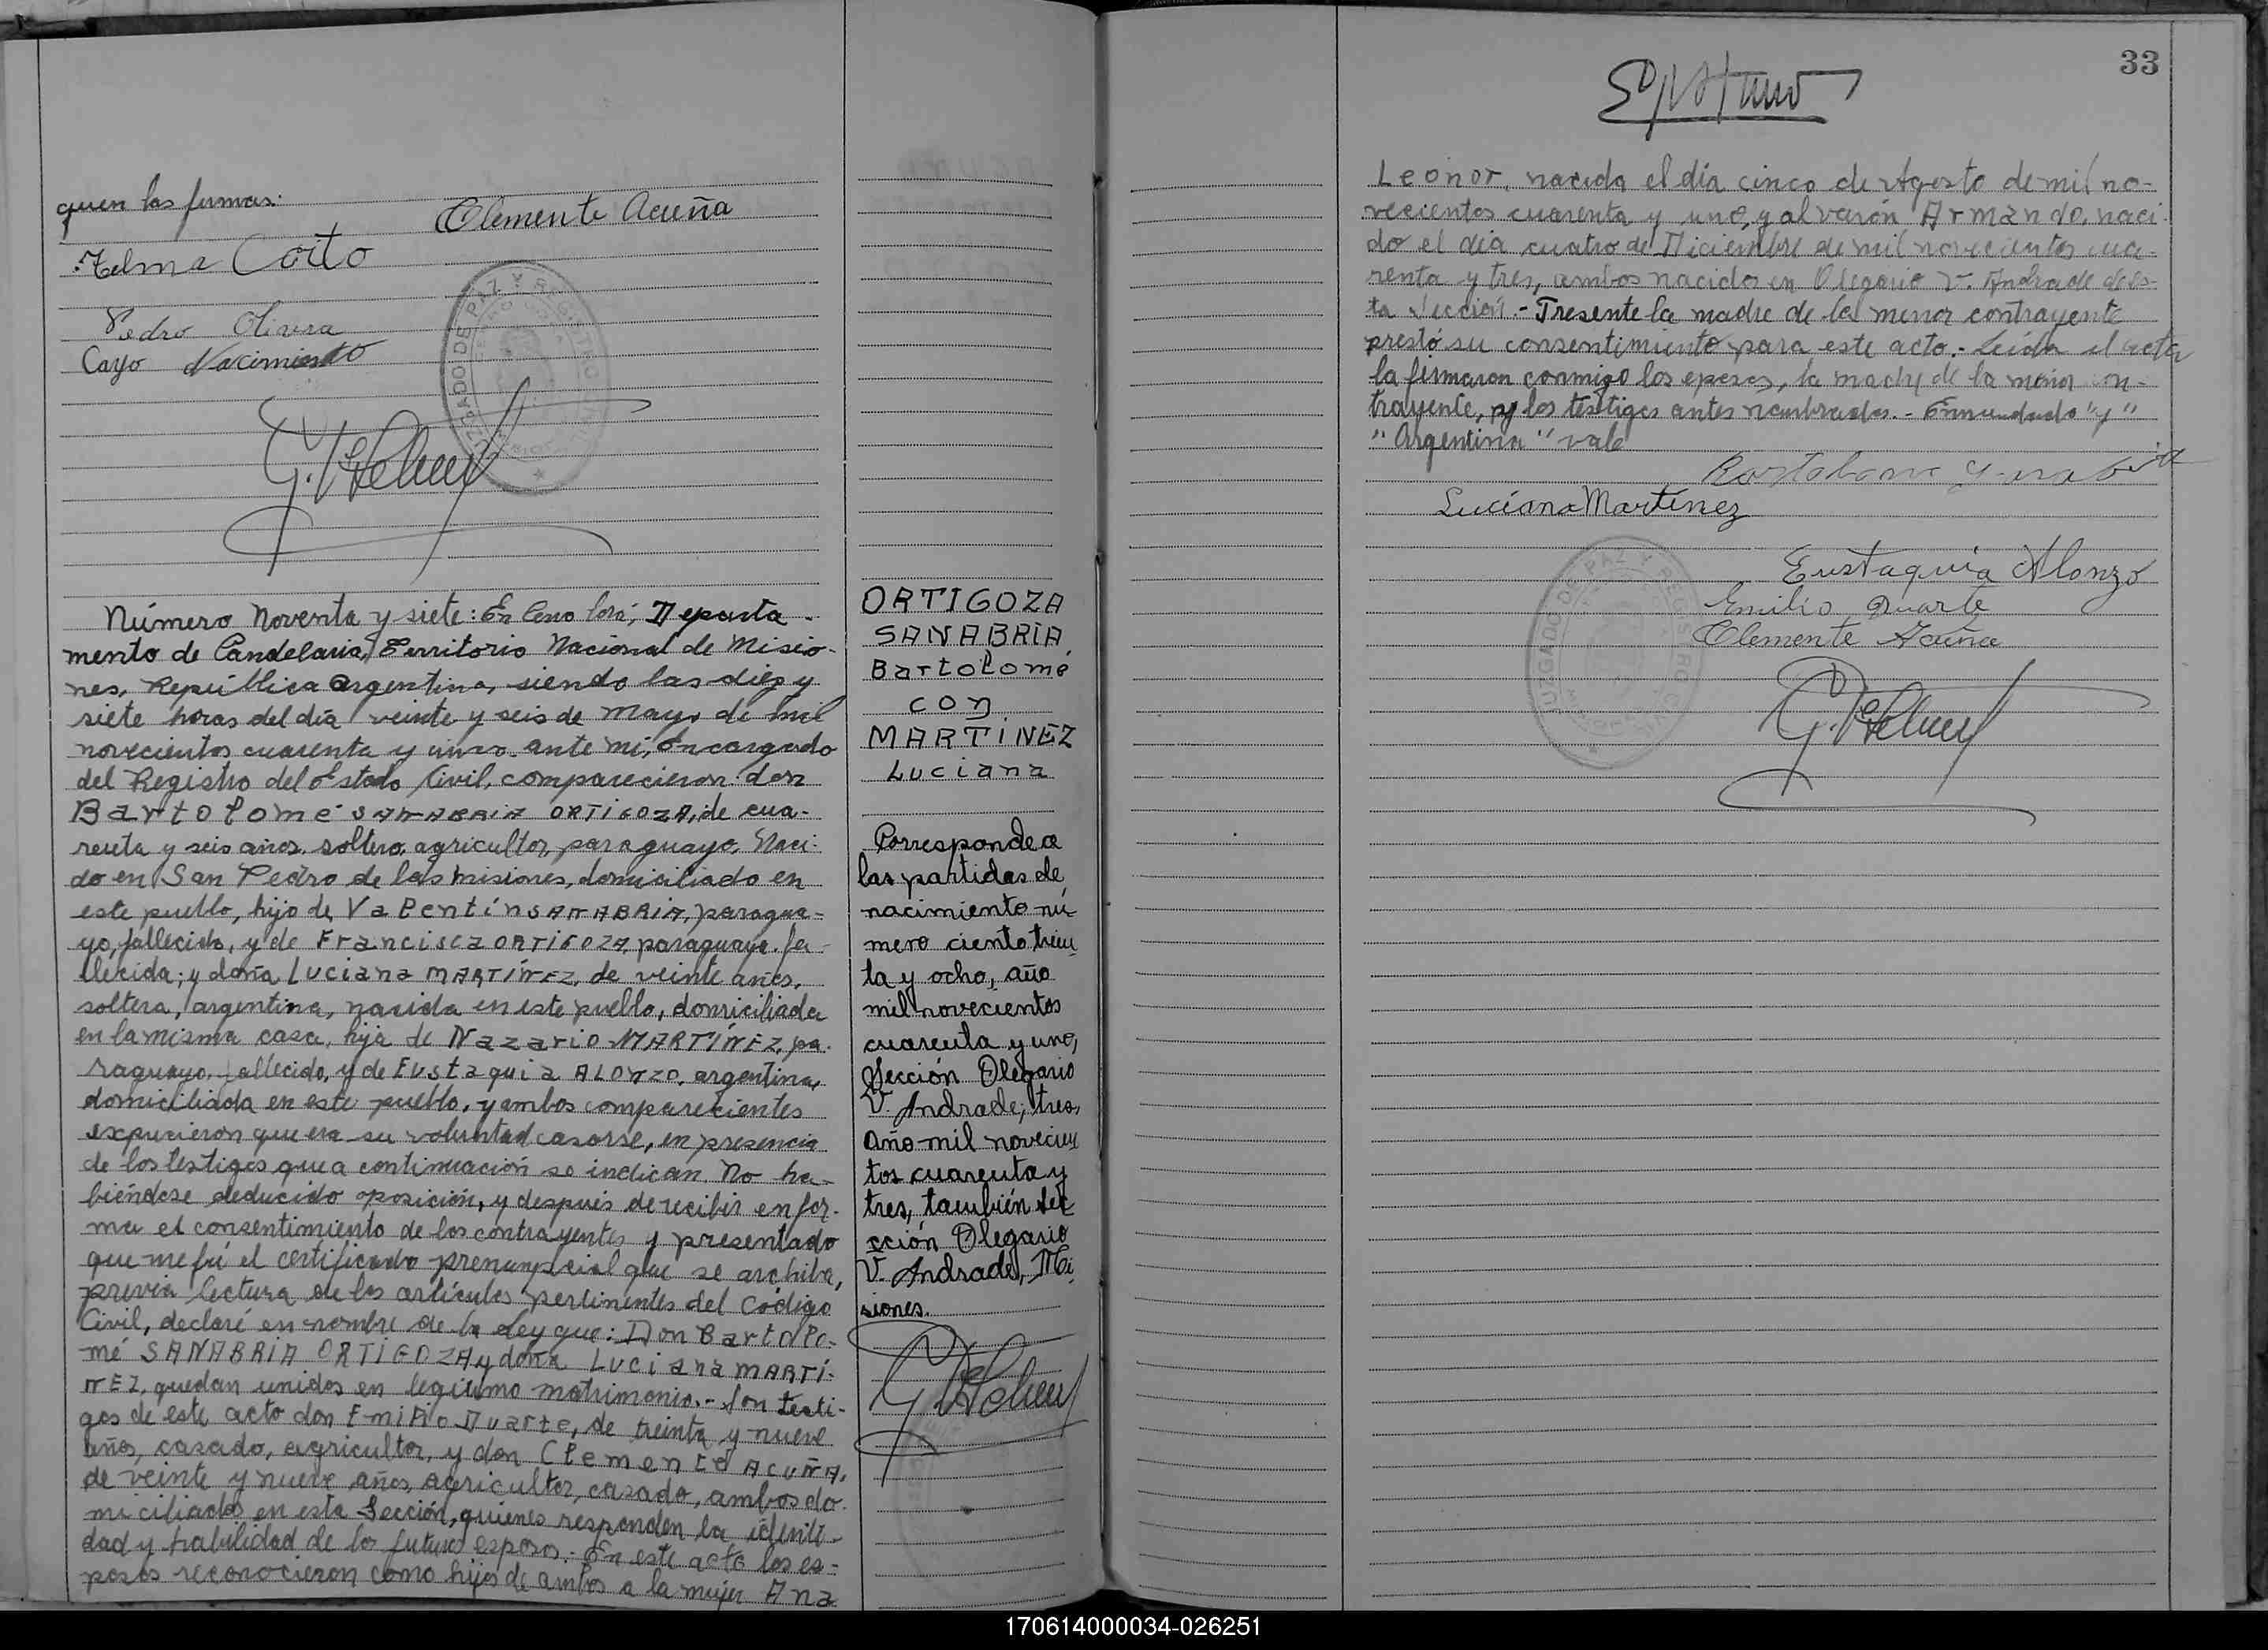 quen las firmas:
Clemente Acuña
Telma Coito
Pedro Olivera
Cayo Nacimiento
JUZGADO DE PAZ Y REGISTRO CIVIL
Número Noventa y siete: En Cerro Corá, Departa-
mento de Candelaria, Territorio Nacional de Misio-
nes, República Argentina, siendo las diez y
siete horas del día veinte y seis de mayo de mil
novecientos cuarenta y cinco ante mí, Encargado
del Registro del Estado Civil, comparecieron: don
Bartolomé SANABRIA ORTIGOZA, de cua-
renta y seis años, soltero, agricultor, paraguayo, Naci-
do en San Pedro de las misiones, domiciliado en
este pueblo, hijo de Valentín SANABRIA, paragua-
yo, fallecido, y de Francisca ORTIGOZA, paraguaya, fa-
llecida; y doña Luciana MARTÍNEZ, de veinte años,
soltera, argentina, nacida en este pueblo, domiciliada
en la misma casa, hija de Nazario MARTÍNEZ, pa-
raguayo, fallecido, y de Eustaquia ALONZO, argentina,
domiciliada en este pueblo, y ambos comparecientes
expusieron que era su voluntad casarse, en presencia
de los testigos que a continuación se indican. No ha-
biéndose deducido oposición, y después de recibir en for-
ma el consentimiento de los contrayentes y presentado
que me fué el certificado prenupcial que se archiba,
previa lectura de los artículos pertinentes del Código
Civil, declaré en nombre de la ley que: Don Bartolo-
mé SANABRIA ORTIGOZA y doña Luciana MARTÍ-
NEZ, quedan unidos en legítimo matrimonio.- Son testi-
gos de este acto don Emilio Duarte, de treinta y nueve
años, casado, agricultor, y don Clemente ACUÑA,
de veinte y nueve años, agricultor, casado, ambos do-
miciliados en esta Sección, quienes responden la identi-
dad y habilidad de los futuros esposos.- En este acto los es-
posos reconocieron como hijos de ambos a la mujer Ana
ORTIGOZA
SANABRIA
Bartolomé
con
MARTÍNEZ
Luciana
Corresponde a
las partidas de
nacimiento nú
mero ciento trein
ta y ocho, año
mil novecientos
cuarenta y uno,
Sección Olegario
V. Andrade; tres,
año mil novecien
tos cuarenta y
tres, también sec
cción Olegario
V. Andrade, Mi
siones.
33
Leonor, nacida el día cinco de Agosto de mil no-
vecientos cuarenta y uno, y al varón Armando, naci-
do el día cuatro de Diciembre de mil novecientos cua-
renta y tres, ambos nacidos en Olegario V. Andrade de es-
ta Sección.- Presente la madre de la menor contrayente
prestó su consentimiento para este acto.- Leída el acta
la firmaron conmigo los esposos, la madre de la menor con-
trayente, y los testigos antes nombrados.- Enmendado "y"
"Argentina" vale
Luciana Martínez
Eustaquia Alonzo
Emilio Duarte
Clemente Acuña
JUZGADO DE PAZ Y REGISTRO CIVIL
170614000034-026251